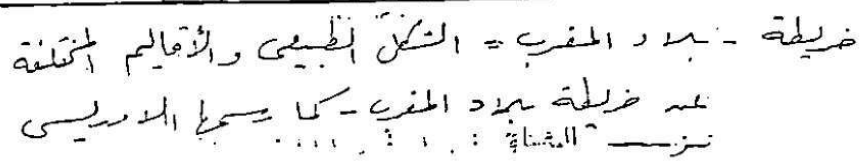 خريطة - بلاد المغرب = الشكل الطبيعى والأقاليم المختلفة
عن خريطة بلاد المغرب - كما رسمها الادريسى